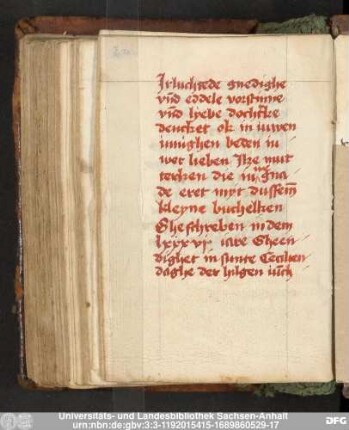 Irluchtede gnedighe
vnd eddele vorstinne
vnd lyebe dochtere
dencket ok in iuwen
innighen beden iu
wer lieben Ilze mut
terken die iuwe gna
de eret myt dussem
kleyne buchelken
Gheschreben in dem
lxxxvj iare Gheen
dighet in sunte Cecilien
daghe der hilgen iuch
Universitäts- und Landesbibliothek Sachsen-Anhalt
urn:nbn:de:gbv:3:3-1192015415-1689860529-17
DFG